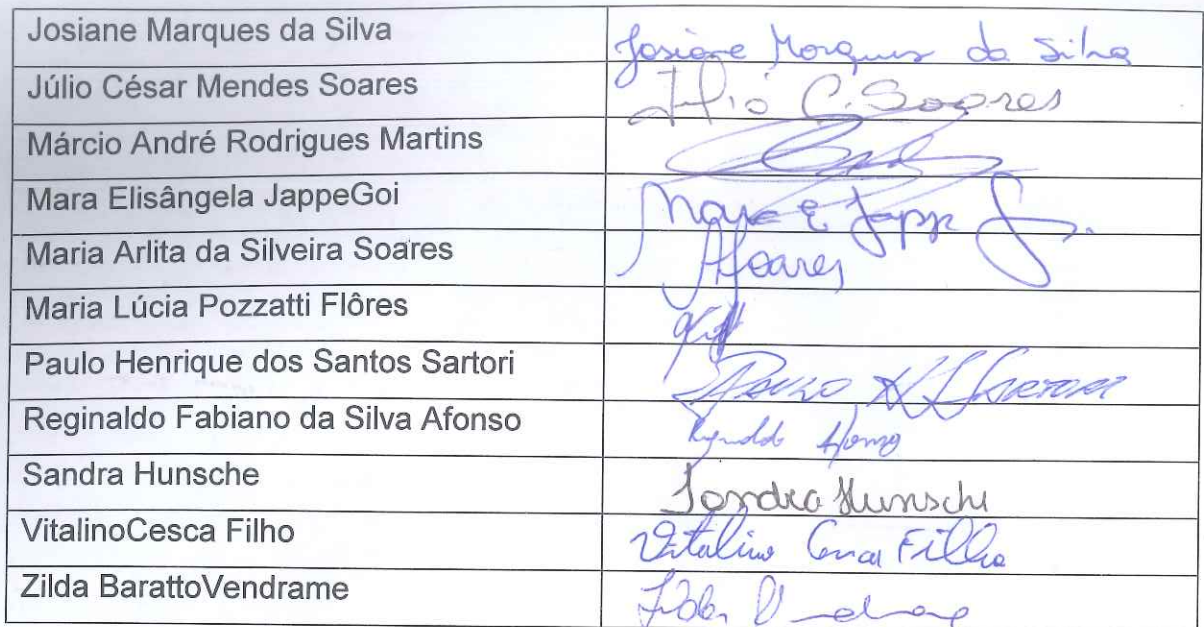 Josiane Marques da Silva Josiane Marques da Silva
Júlio César Mendes Soares Júlio C. Soares
Márcio André Rodrigues Martins
Mara Elisângela JappeGoi Mara E. Jappe
Maria Arlita da Silveira Soares Soares
Maria Lúcia Pozzatti Flôres
Paulo Henrique dos Santos Sartori Paulo H S Sartori
Reginaldo Fabiano da Silva Afonso Reginaldo Afonso
Sandra Hunsche Sandra Hunsche
VitalinoCesca Filho Vitalino Cesca Filho
Zilda BarattoVendrame Zilda Vendrame